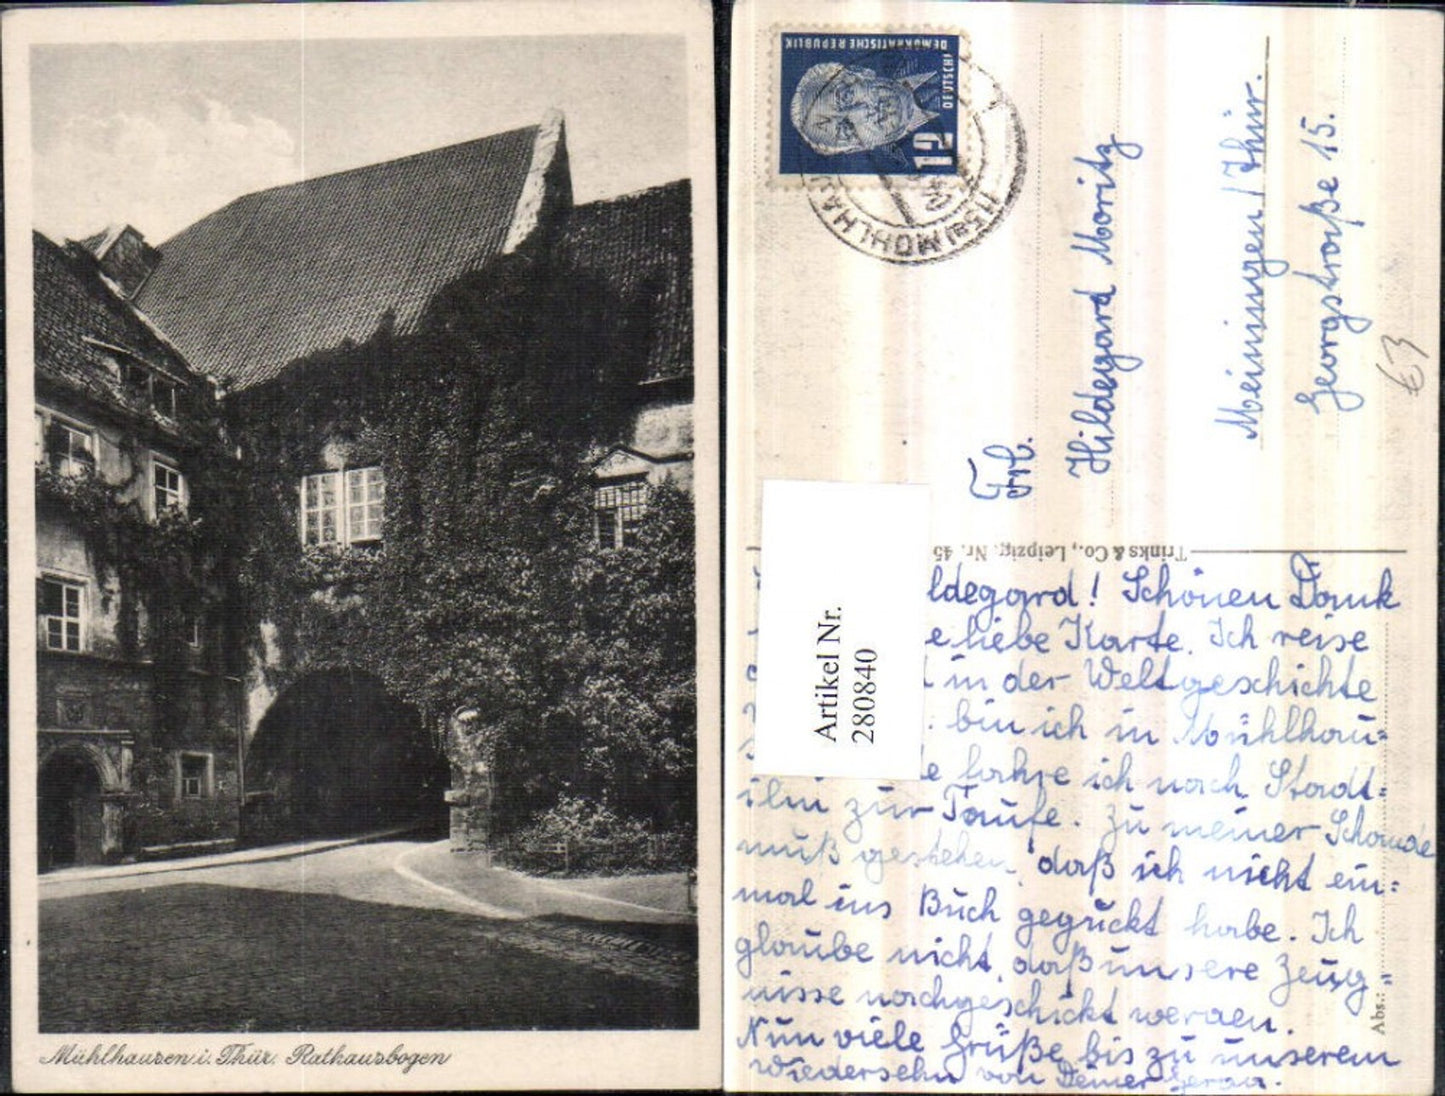 Mühlhausen i. Thür. Rathausbogen
DEUTSCHE DEMOKRATISCHE REPUBLIK
12
(15a) MÜHLHAU
Frl.
Hildegard Moritz
Meiningen/Thür.
Georgstraße 15.
€3
Trinks & Co., Leipzig. Nr. 45
Artikel Nr.
280840
ldegard! Schönen Dank
e liebe Karte. Ich reise
in der Weltgeschichte
bin ich in Mühlhau=
fahre ich nach Stadt=
ilm zur Taufe. Zu meiner Schande
muß gestehen, daß ich nicht ein=
mal ins Buch geguckt habe. Ich
glaube nicht, daß unsere Zeug=
nisse nachgeschickt werden.
Nun viele Grüße bis zu unserem
Wiedersehn von Deiner
Abs.: